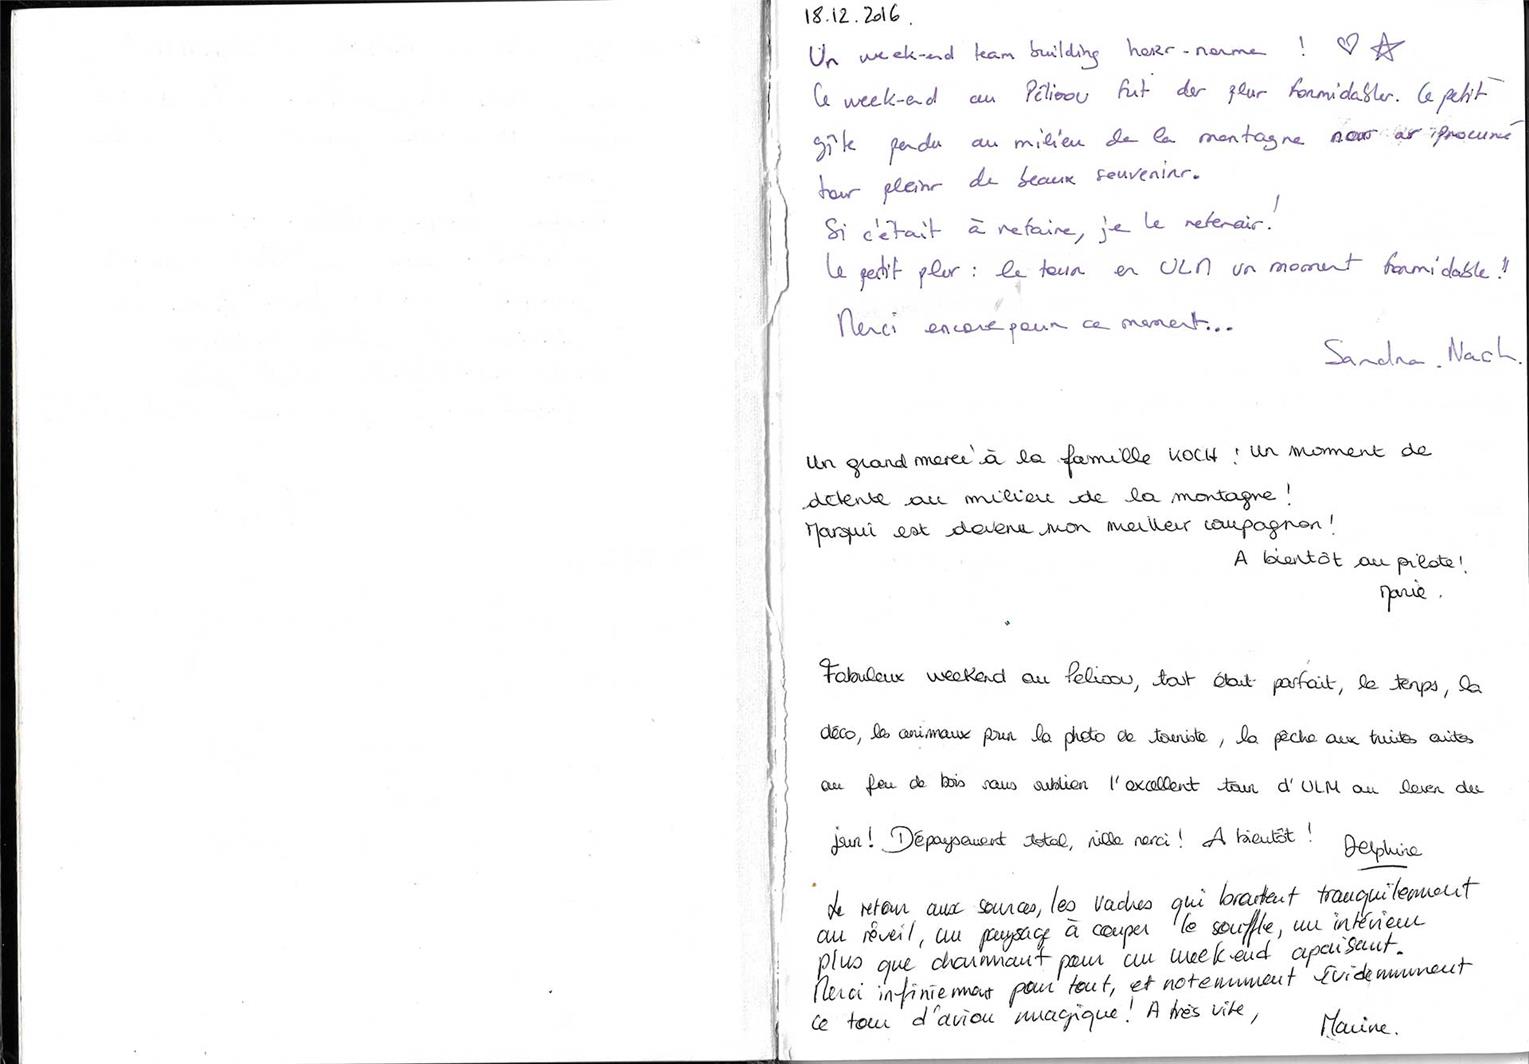 18.12.2016.
Un week-end team building hors-norme ! ♡ ☆
Ce week-end au Pélisou fut des plus formidables. Ce petit
gîte perdu au milieu de la montagne nous as procuré
tous pleins de beaux souvenirs.
Si c'était à refaire, je le referais !
Le petit plus : le tour en ULM un moment formidable !!
Merci encore pour ce moment...
Sandra . Nach.
Un grand merci à la famille KOCH ! Un moment de
détente au milieu de la montagne !
Marqui est devenu mon meilleur compagnon !
A bientôt au pilote !
Marie .
Fabuleux weekend au Pelisou, tout était parfait, le temps, la
déco, les animaux pour la photo de touriste, la pêche aux truites cuites
au feu de bois sans oublier l'excellent tour d'ULM au lever du
jour ! Dépaysement total, mille merci ! A bientôt !
Delphine
Le retour aux sources, les vaches qui broutent tranquilement
au réveil, un paysage à couper le souffle, un intérieur
plus que charmant pour un week-end apaisant.
Merci infiniement pour tout, et notemment évidemmment
ce tour d'avion magique ! A très vite,
Marine.